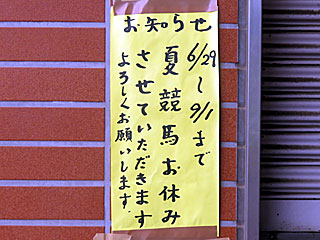 お知らせ
6/29〜9/1まで
夏競馬お休み
させていただきます
よろしくお願いします.